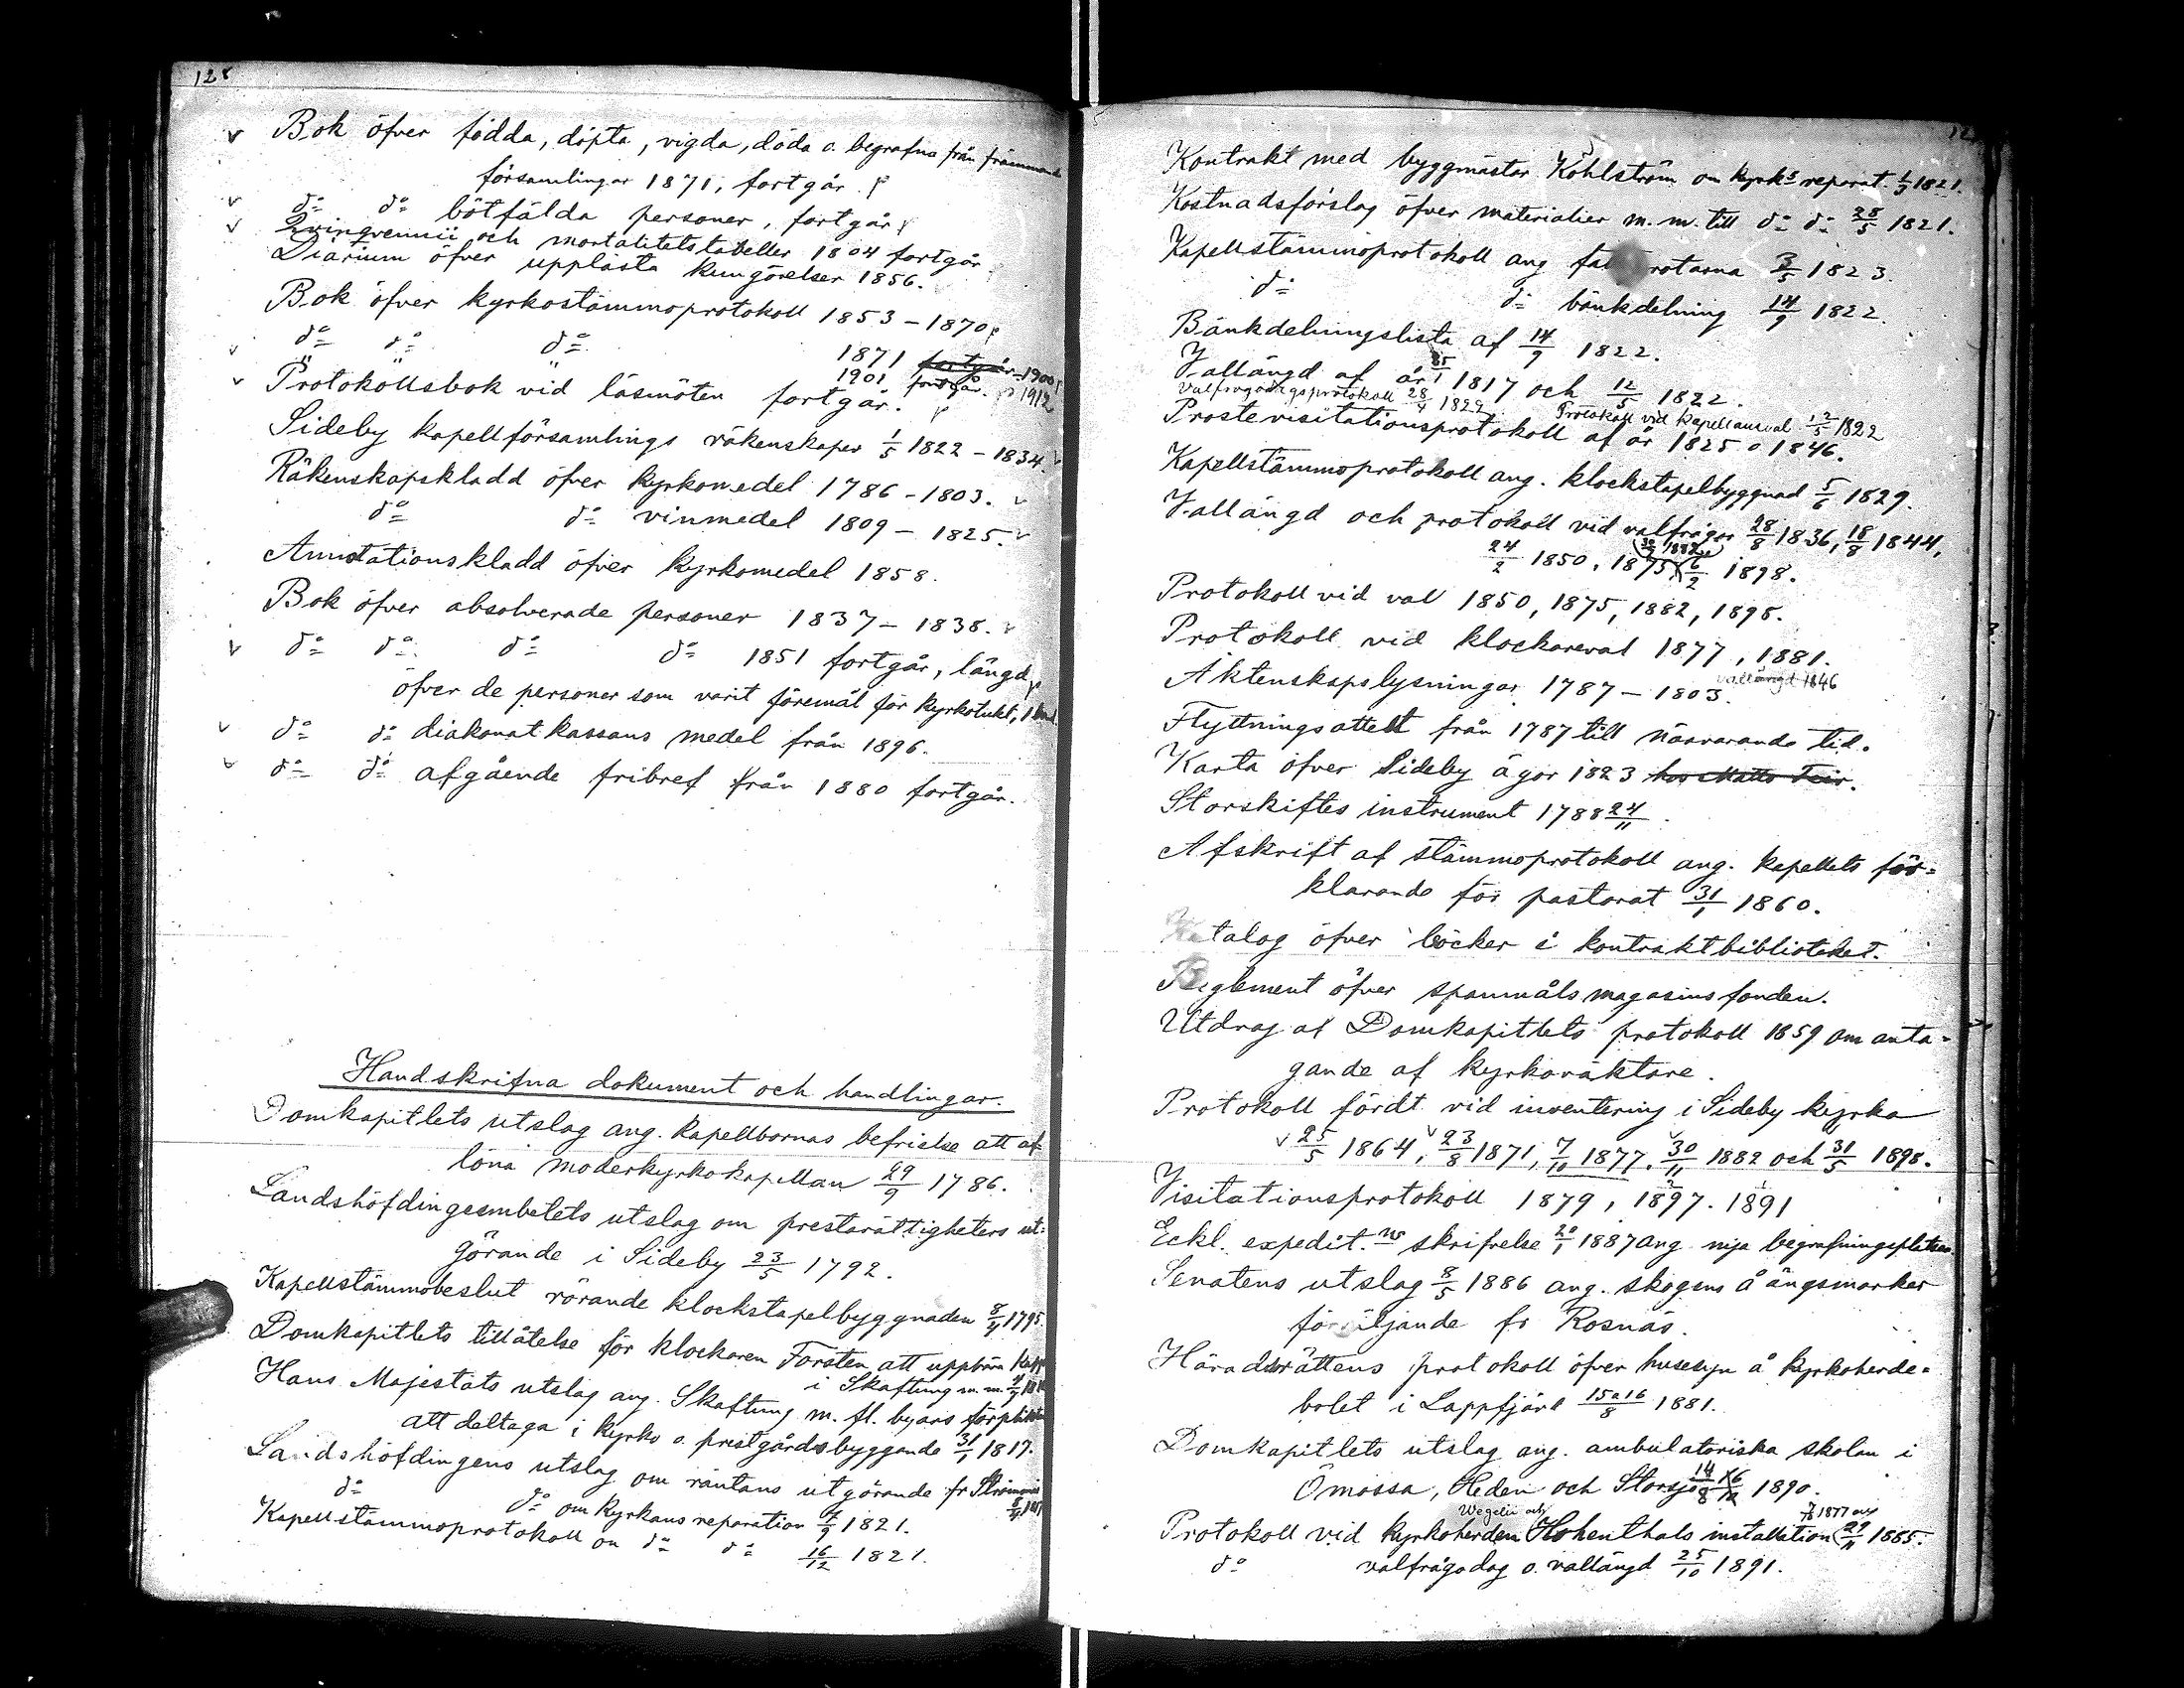 128
Bok öfver födda, döpta, vigda, döda o. begrafna från främmande
församlingar 1871, fortgår.
d:o d:o bötfälda personer, fortgår
Qvinqvennii och mortalitetstabeller 1804 fortgår
Diarium öfver upplästa kungörelser 1856.
Bok öfver kyrkostämmoprotokoll 1853 – 1870
d:o d:o d:o 1871 fortgår 1900
" " 1901 fortgår. 1912
Protokollsbok vid läsmöten fortgår.
Sideby kapellförsamlings räkenskaper 1/5 1822 – 1834.
Räkenskapskladd öfver kyrkomedel 1786 – 1803.
d:o d:o vinmedel 1809 – 1825.
Annotationskladd öfver kyrkomedel 1858.
Bok öfver absolverade personer 1837 – 1838.
d:o d:o d:o d:o 1851 fortgår, längd
öfver de personer som varit föremål för kyrkotukt, 1
d:o d:o diakonatkassans medel från 1896.
d:o d:o afgående fribref från 1880 fortgår.
Handskrifna dokument och handlingar.
Domkapitlets utslag ang. kapellbornas befrielse att af
löna moderkyrkokapellan 29/9 1786.
Landshöfdingeembetets utslag om prestarättigheters ut=
görande i Sideby 23/5 1792.
Kapellstämmobeslut rörande klockstapelbyggnaden 8/4 1795.
Domkapitlets tillåtelse för klockaren Forsten att uppbära
i Skaftung m.m.
Hans Majestäts utslag ang. Skaftung m. fl. byars förpliktelse
att deltaga i kyrko o. prestgårdsbyggande 31/1 1817.
Landshöfdingens utslag om räntans utgörande fr
d:o d:o om kyrkans reparation 7/9 1821.
Kapellstämmoprotokoll om d:o d:o 16/12 1821.
Kontrakt med byggmästar Kohlström om kyrks reparat. 1/5 1821.
Kostnadsförslag öfver materialier m. m. till d:o d:o 28/5 1821.
Kapellstämmoprotokoll ang rotarna 3/5 1823.
d:o d:o bänkdelning 14/9 1822.
Bänkdelningslista af 14/9 1822.
Vallängd af år 1817 och 12/5 1822.
Valfrågningsprotokoll 28/4 1822. Protokoll vid kapellansval 12/5 1822
Prostevisitationsprotokoll af år 1825 o 1846.
Kapellstämmoprotokoll ang. klockstapelbyggnad 5/6 1829.
Vallängd och protokoll vid valfrågor 28/8 1836, 18/8 1844,
24/2 1850, 1875, 1882, 6/2 1898.
Protokoll vid val 1850, 1875, 1882, 1898.
Protokoll vid klockareval 1877, 1881.
vallängd 1846
Äktenskapslysningar 1787 – 1803.
Flyttningsattest från 1787 till närvarande tid.
Karta öfver Sideby ägor 1823 hos Matts Teir.
Storskiftes instrument 1788 24/11.
Afskrift af stämmoprotokoll ang. kapellets för=
klarande för pastorat 31/1 1860.
Katalog öfver böcker i kontraktbiblioteket.
Reglement öfver spanmålsmagasinsfonden.
Utdrag af Domkapitlets protokoll 1859 om anta=
gande af kyrkoväktare.
Protokoll fördt vid inventering i Sideby kyrka
25/5 1864, 23/8 1871, 7/10 1877, 30/11 1882 och 31/5 1898.
Visitationsprotokoll 1879, 1897. 1891
Eckl. expedit. ns skrifvelse 20/1 1887 ang nya begrafningsplatsen
Senatens utslag 8/5 1886 ang. skogens å ängsmarker
försäljande fr Rosnäs.
Häradsrättens protokoll öfver husesyn å kyrkoherde=
bolet i Lappfjärd 15 o 16/8 1881.
Domkapitlets utslag ang. ambulatoriska skolan i
Ömossa, Heden och Storsjö 14/8 1890.
Wegelii och 7/10 1877 och
Protokoll vid kyrkoherden Hohenthals installation 29/11 1885.
d:o valfrågodag o. vallängd 25/10 1891.